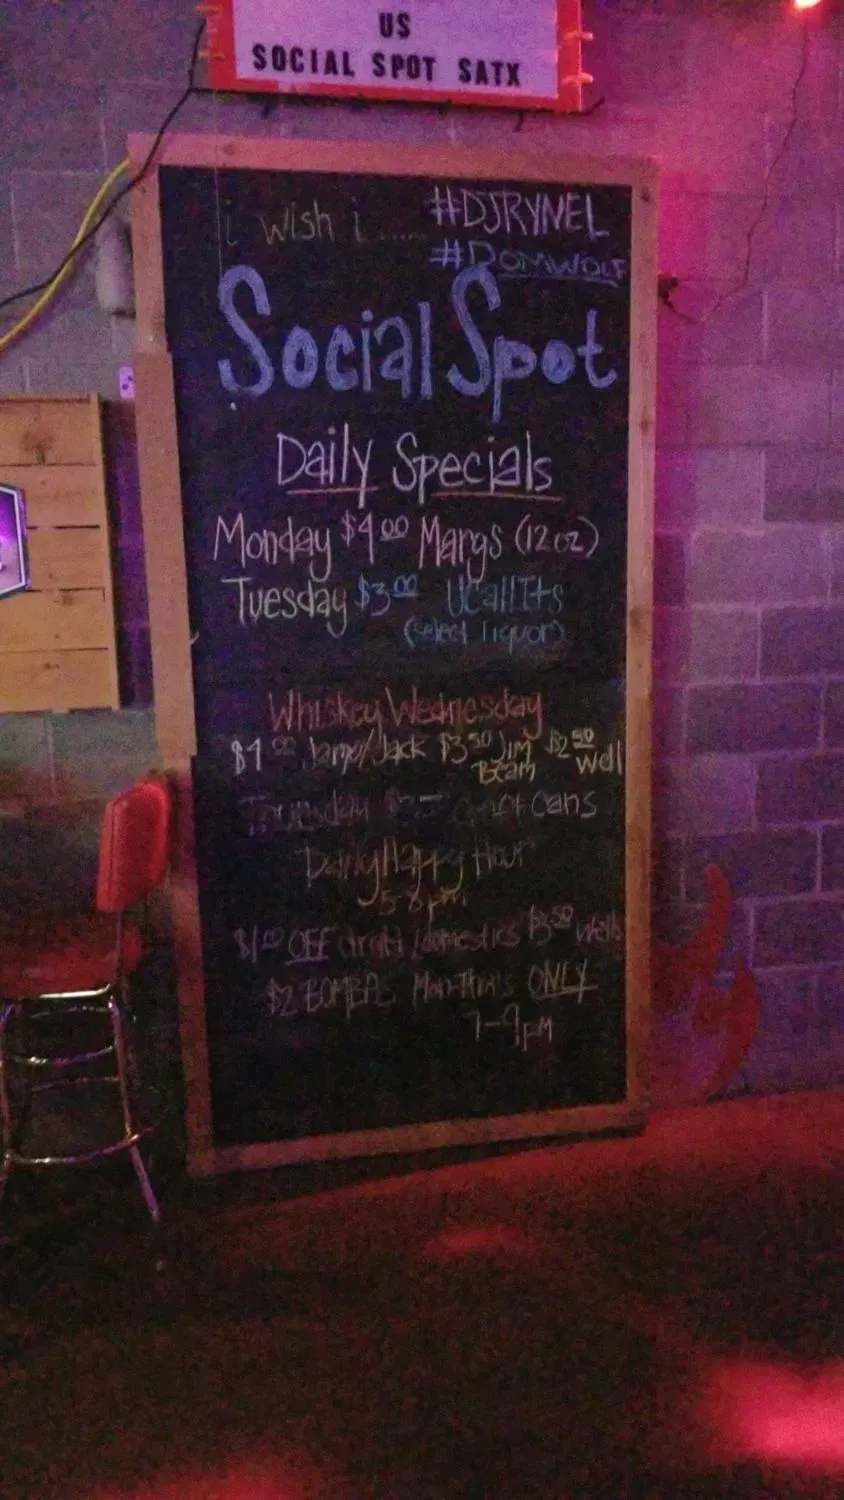 US
SOCIAL SPOT SATX
i wish i...... #DJRYNEL
#DOMWOLF
Social Spot
Daily Specials
Monday $4.00 Margs (12oz)
Tuesday $3.00 UCallIts
(select liquor)
Whiskey Wednesday
$4.00 Jamo/Jack $3.50 Jim Beam $2.50 Well
Thursday cans
Daily Happy Hour
5-8pm
$1.00 OFF draft/domestics $3.50 Wells
$2 BOMBAS Mon-Thurs ONLY
7-9pm